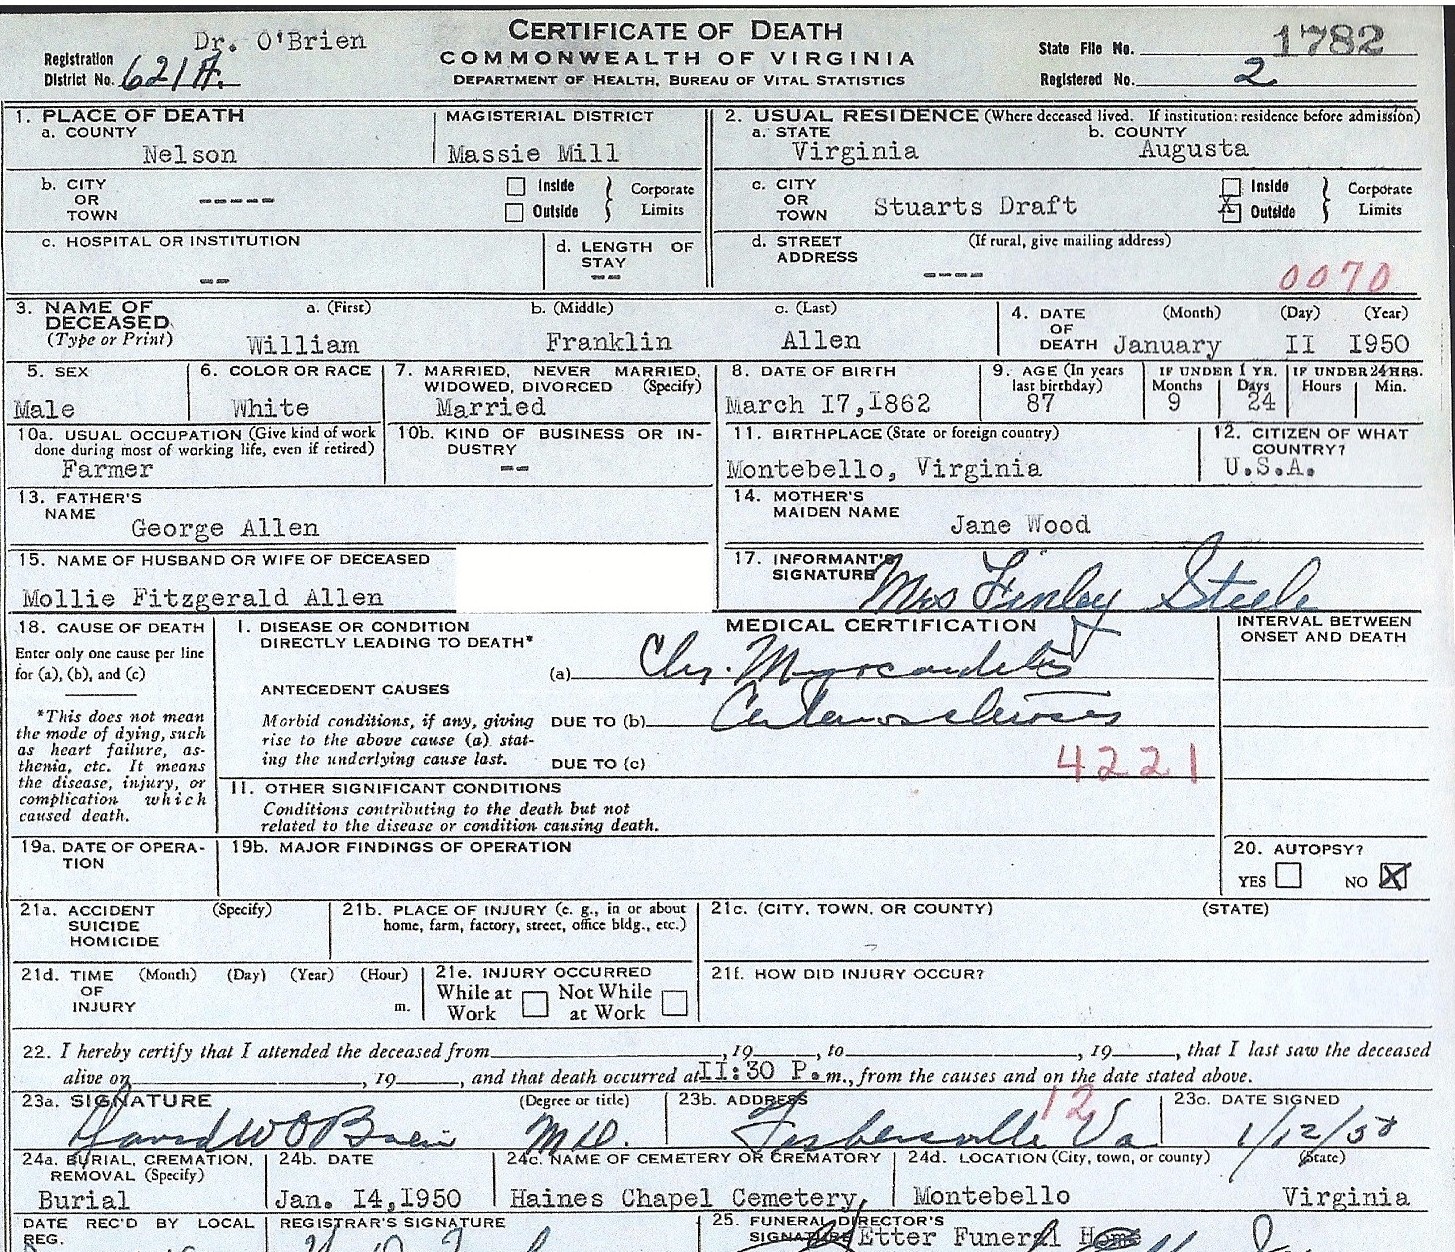 Dr. O'Brien
CERTIFICATE OF DEATH
COMMONWEALTH OF VIRGINIA
DEPARTMENT OF HEALTH, BUREAU OF VITAL STATISTICS
Registration
District No. 621A.
State File No. 1782
Registered No. 2
1. PLACE OF DEATH
a. COUNTY
Nelson
MAGISTERIAL DISTRICT
Massie Mill
2. USUAL RESIDENCE (Where deceased lived. If institution: residence before admission)
a. STATE
Virginia
b. COUNTY
Augusta
b. CITY
OR
TOWN
-----
Inside
Outside
Corporate
Limits
c. CITY
OR
TOWN
Stuarts Draft
Inside
X Outside
Corporate
Limits
c. HOSPITAL OR INSTITUTION
--
d. LENGTH OF
STAY
--
d. STREET
ADDRESS
(If rural, give mailing address)
----
0070
3. NAME OF
DECEASED
(Type or Print)
a. (First)
William
b. (Middle)
Franklin
c. (Last)
Allen
4. DATE
OF
DEATH
(Month) (Day) (Year)
January II I950
5. SEX
Male
6. COLOR OR RACE
White
7. MARRIED, NEVER MARRIED,
WIDOWED, DIVORCED (Specify)
Married
8. DATE OF BIRTH
March I7,I862
9. AGE (In years
last birthday)
87
IF UNDER 1 YR.
Months Days
9 24
IF UNDER 24 HRS.
Hours Min.
10a. USUAL OCCUPATION (Give kind of work
done during most of working life, even if retired)
Farmer
10b. KIND OF BUSINESS OR IN-
DUSTRY
--
11. BIRTHPLACE (State or foreign country)
Montebello, Virginia
12. CITIZEN OF WHAT
COUNTRY?
U.S.A.
13. FATHER'S
NAME
George Allen
14. MOTHER'S
MAIDEN NAME
Jane Wood
15. NAME OF HUSBAND OR WIFE OF DECEASED
Mollie Fitzgerald Allen
17. INFORMANT'S
SIGNATURE
Mrs Finley Steele
18. CAUSE OF DEATH
Enter only one cause per line
for (a), (b), and (c)
*This does not mean
the mode of dying, such
as heart failure, as-
thenia, etc. It means
the disease, injury, or
complication which
caused death.
I. DISEASE OR CONDITION
DIRECTLY LEADING TO DEATH*
MEDICAL CERTIFICATION
INTERVAL BETWEEN
ONSET AND DEATH
(a) Chr. Myocarditis
ANTECEDENT CAUSES
Morbid conditions, if any, giving
rise to the above cause (a) stat-
ing the underlying cause last.
DUE TO (b)
DUE TO (c)
4221
II. OTHER SIGNIFICANT CONDITIONS
Conditions contributing to the death but not
related to the disease or condition causing death.
19a. DATE OF OPERA-
TION
19b. MAJOR FINDINGS OF OPERATION
20. AUTOPSY?
YES NO X
21a. ACCIDENT
SUICIDE
HOMICIDE
(Specify)
21b. PLACE OF INJURY (e. g., in or about
home, farm, factory, street, office bldg., etc.)
21c. (CITY, TOWN, OR COUNTY) (STATE)
21d. TIME
OF
INJURY
(Month) (Day) (Year) (Hour)
m.
21e. INJURY OCCURRED
While at
Work
Not While
at Work
21f. HOW DID INJURY OCCUR?
22. I hereby certify that I attended the deceased from , 19 , to , 19 , that I last saw the deceased
alive on , 19 , and that death occurred at II:30 P.m., from the causes and on the date stated above.
23a. SIGNATURE
David W O'Brien
(Degree or title)
M.D.
23b. ADDRESS
Fishersville Va
12
23c. DATE SIGNED
1/12/50
24a. BURIAL, CREMATION,
REMOVAL (Specify)
Burial
24b. DATE
Jan. I4,I950
24c. NAME OF CEMETERY OR CREMATORY
Haines Chapel Cemetery,
24d. LOCATION (City, town, or county) (State)
Montebello Virginia
DATE REC'D BY LOCAL
REG.
REGISTRAR'S SIGNATURE
25. FUNERAL DIRECTOR'S
SIGNATURE
Etter Funeral Home